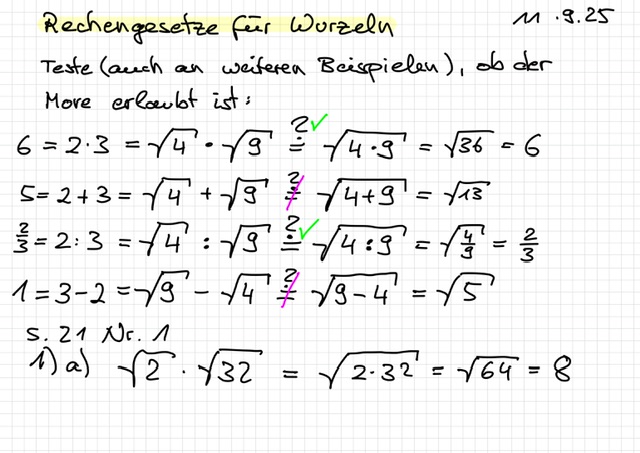 Rechengesetze für Wurzeln 11.9.25
Teste (auch an weiteren Beispielen), ob der
Move erlaubt ist:
6 = 2·3 = √4 · √9 ≟ ✓ √(4·9) = √36 = 6
5 = 2+3 = √4 + √9 ≟ √(4+9) = √13
2/3 = 2:3 = √4 : √9 ≟ ✓ √(4:9) = √(4/9) = 2/3
1 = 3-2 = √9 - √4 ≟ √(9-4) = √5
S. 21 Nr. 1
1) a) √2 · √32 = √(2·32) = √64 = 8